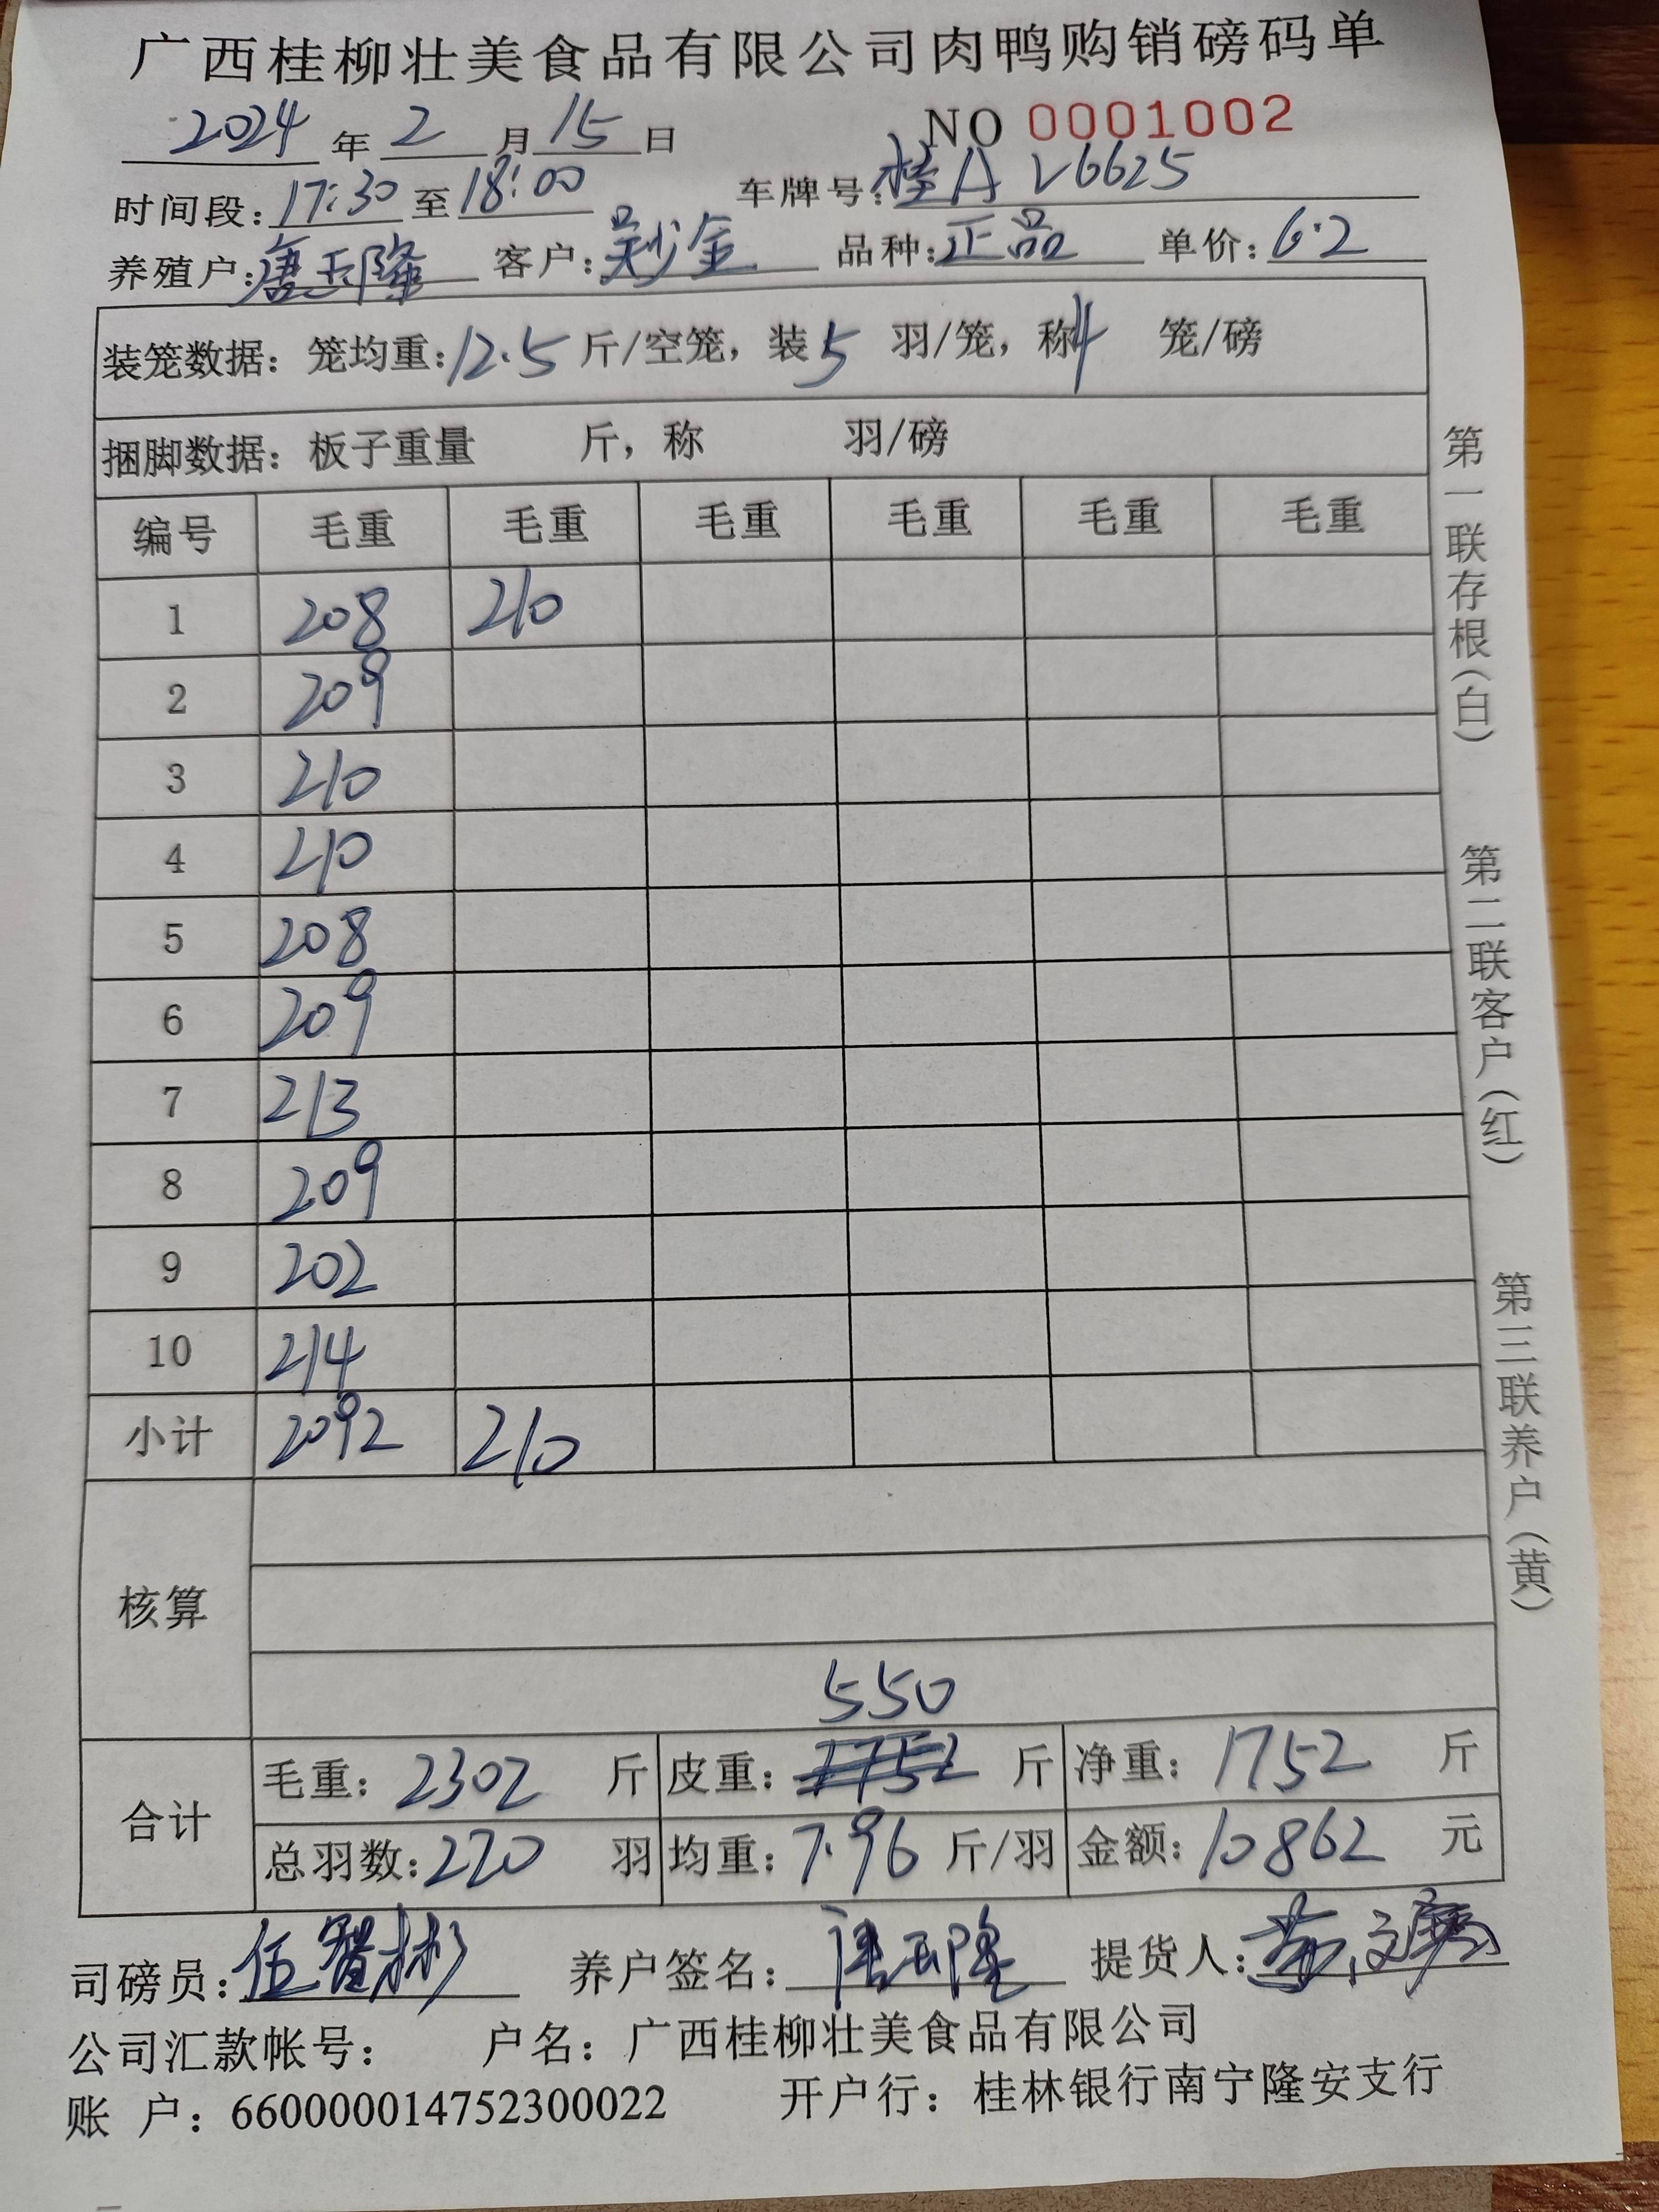 广西桂柳壮美食品有限公司肉鸭购销磅码单
2024年2月15日 NO 0001002
时间段:17:30至18:00 车牌号:桂A V6625
养殖户:唐玉隆 客户:吴少金 品种:正品 单价:6.2
装笼数据: 笼均重:12.5斤/空笼, 装5 羽/笼, 称4 笼/磅
捆脚数据: 板子重量 斤, 称 羽/磅
编号 毛重 毛重 毛重 毛重 毛重 毛重
1 208 210
2 209
3 210
4 210
5 208
6 209
7 213
8 209
9 202
10 214
小计 2092 210
核算
550
合计
毛重: 2302 斤 皮重: 1752 斤 净重: 1752 斤
总羽数: 220 羽 均重: 7.96 斤/羽 金额: 10862 元
司磅员:伍智彬 养户签名: 唐玉隆 提货人:
公司汇款帐号: 户名: 广西桂柳壮美食品有限公司
账 户: 660000014752300022 开户行: 桂林银行南宁隆安支行
第一联存根(白) 第二联客户(红) 第三联养户(黄)